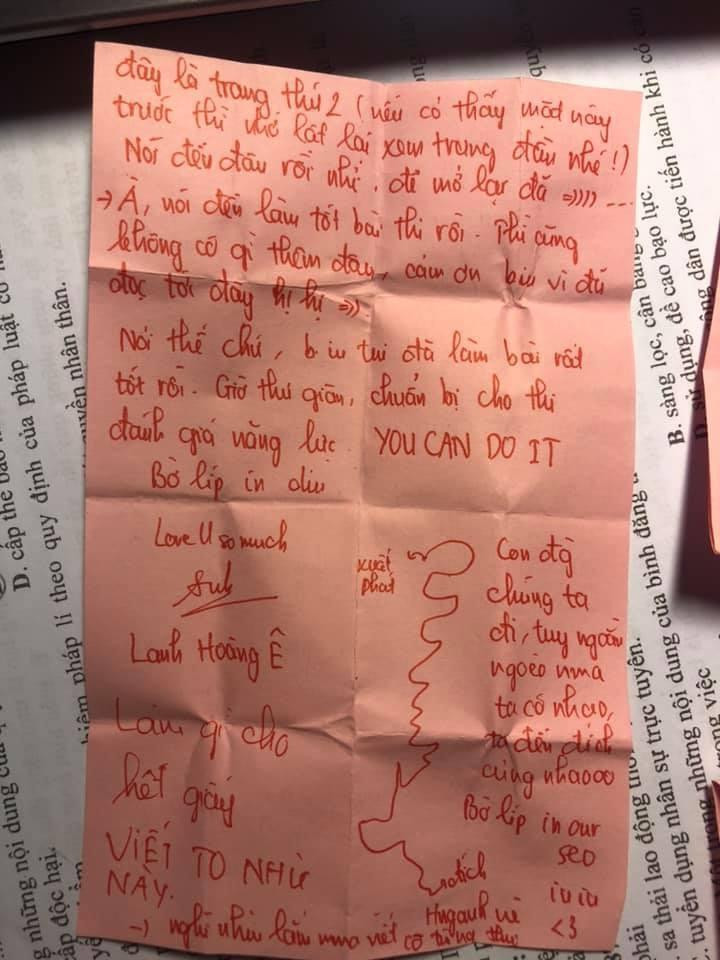 đây là trang thứ 2 (nếu có thấy mặt này
trước thì nhớ lật lại xem trang đầu nhé!)
Nói đến đâu rồi nhỉ, để mở lại đã =)))) ....
→ À, nói đến làm tốt bài thi rồi. Thì cũng
không có gì thêm đây, cảm ơn biu vì đã
đọc tới đây hị hị =)).
Nói thế chứ, biu tui đã làm bài rất
tốt rồi. Giờ thư giãn, chuẩn bị cho thi
đánh giá năng lực. YOU CAN DO IT
Bờ líp in diu
Love U so much
Lanh Hoàng Ê
Làm gì cho
hết giấy
VIẾT TO NHƯ
NÀY.
→ nghĩ nhìu lắm nma viết có từng thui
xuất
phát
đích
Con đg
chúng ta
đi, tuy ngoằn
ngoèo nma
ta có nhao,
ta đến đích
cùng nhaooo
Bờ líp in our
seo
iu iu
<3
D. cấp thẻ bảo
theo quy định của pháp luật
quyền nhân thân.
B. sàng lọc, cân bằng
D. sử dụng, đề cao bạo lực.
dân được tiến hành khi có
những nội dung của bình đẳng
sa thải lao động
tuyển dụng nhân sự trực tuyến.
những nội dung
cấp độc hại.